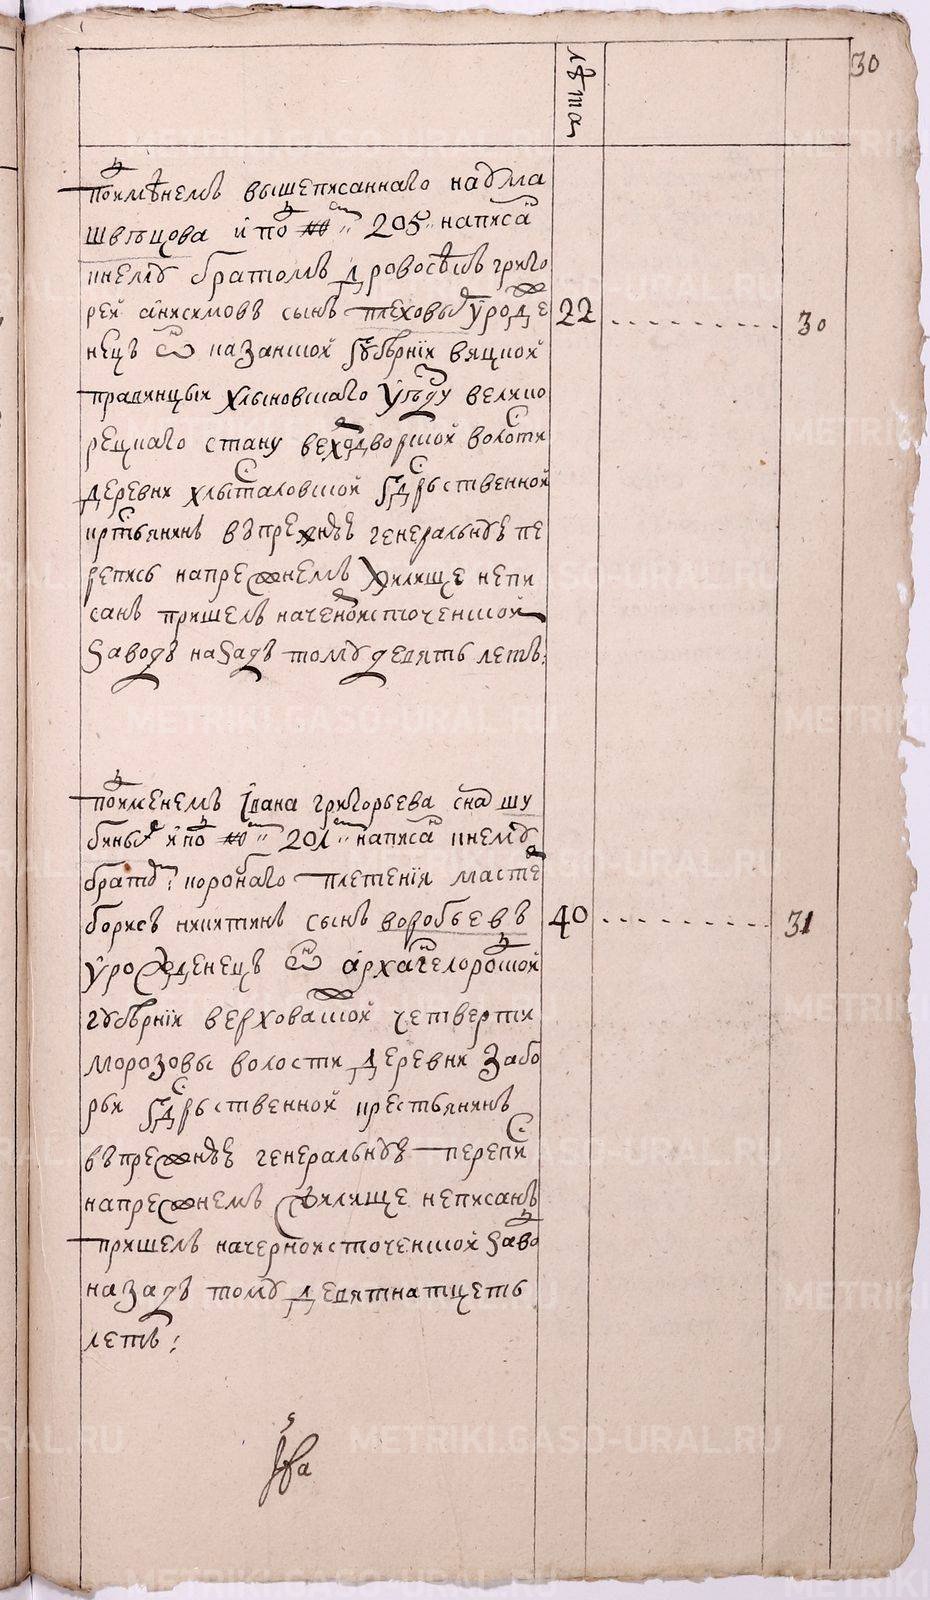 30
лѣта
поимѣнемъ вышеписаннаго наума
швѣцова и по 205 написа
кнему братомъ дровосѣкъ григо
рей анисимовъ сынъ плеховыхъ уроде 22 30
нецъ казанской губѣрнїи вяцкой
правинцыи хлыновскаго уѣзду велико
рецкаго стану веходворской волости
деревни хлысталовской гдрьственной
кртьянинъ впрежнѣе генеральнѣе пе
репись напрежнемъ жилище непи
санъ пришелъ начерноисточенской
заводъ назадъ тому девять летъ
поименемъ ївана григорьева сна шу
бины и по 201 написа кнему
брату коробнаго плетения мастѣ
борисъ никитинъ сынъ воробьевъ 40 31
уроженецъ архангелогороцкой
губѣрнїи верховаской четверти
морозовы волости деревни забо
рья гдрьственной крестьянинъ
впрежнѣе генеральнѣе перепи
напрежнемъ жилище неписанъ
пришелъ начерноисточенской заво
назадъ тому девятнатцеть
летъ
METRIKI.GASO-URAL.RU